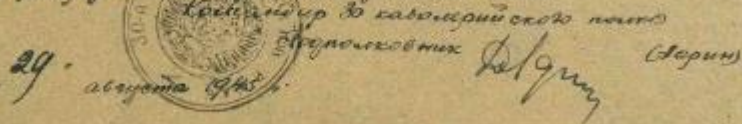 Командир 30 кавалерийского полка
Подполковник (Ларин)
29.
августа 1945 г.